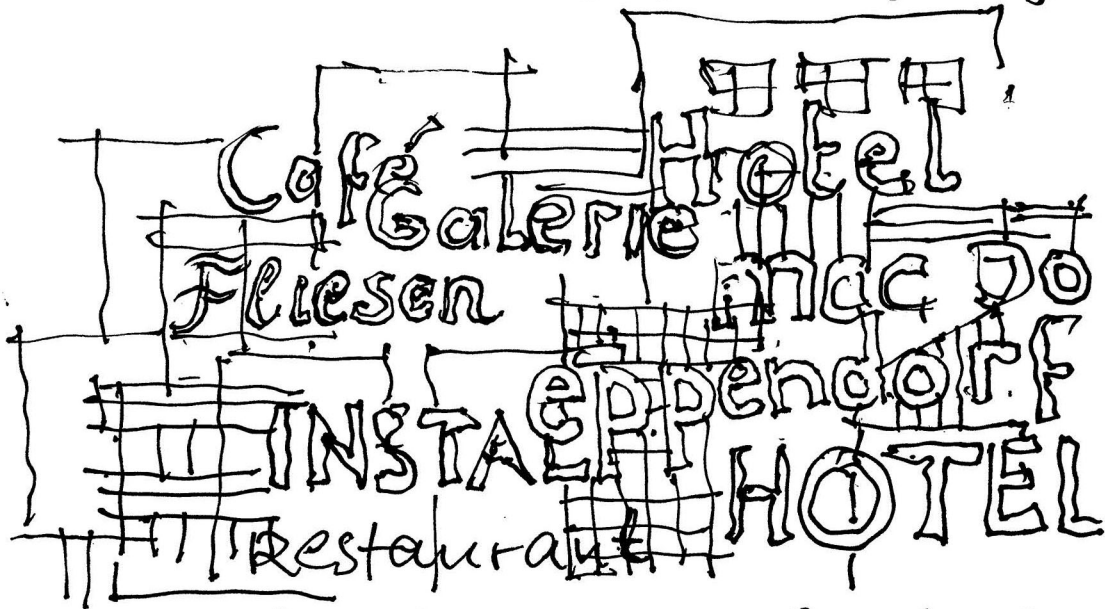 Café Hotel
Galerie
Fliesen
eppendorf
INSTAL HOTEL
Restaurant